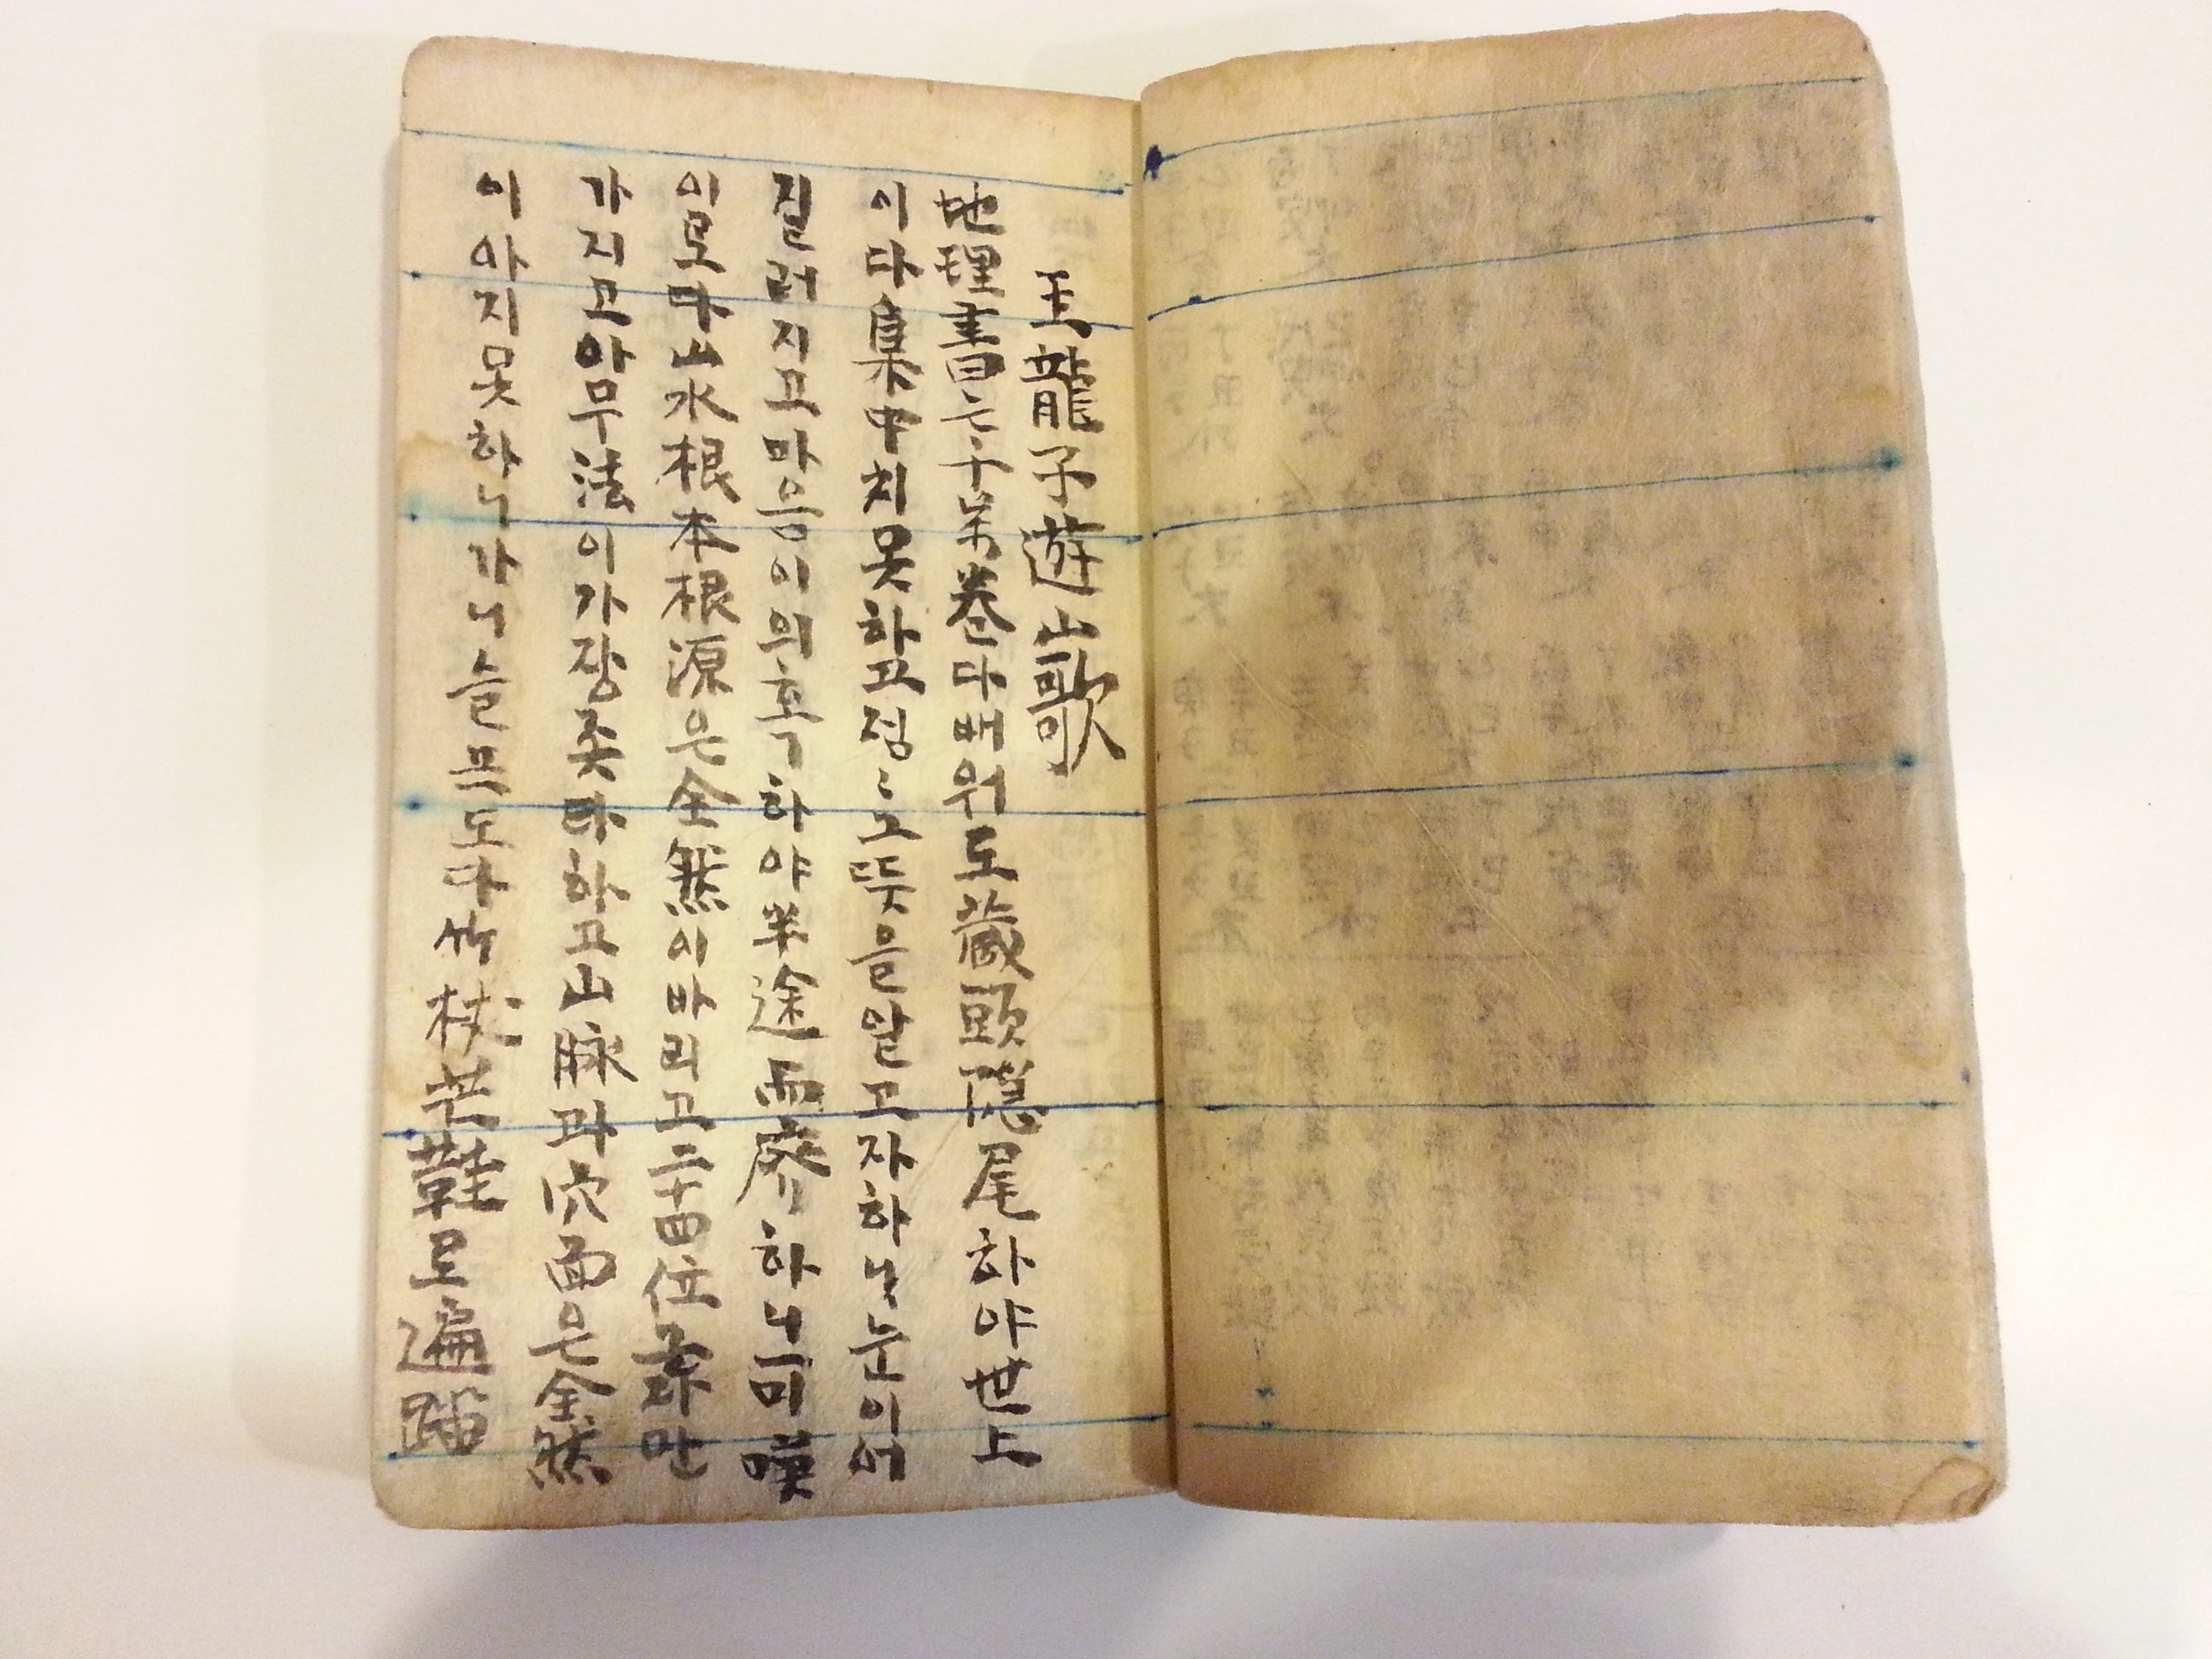 玉龍子遊山歌
地理書는千萬卷다배워도藏頭隱尾하야世上
이다集中치못하고점〻그뜻을알고자하나눈이어
질러지고마음이의혹하야半途而廢하니미嘆
이로다山水根本根源은全然이바리고二十四位골자만
가지고아무法이가장좃타하고山脉과穴面은全然
이아지못하니가니슬프도다竹杖芒鞋로遍踏